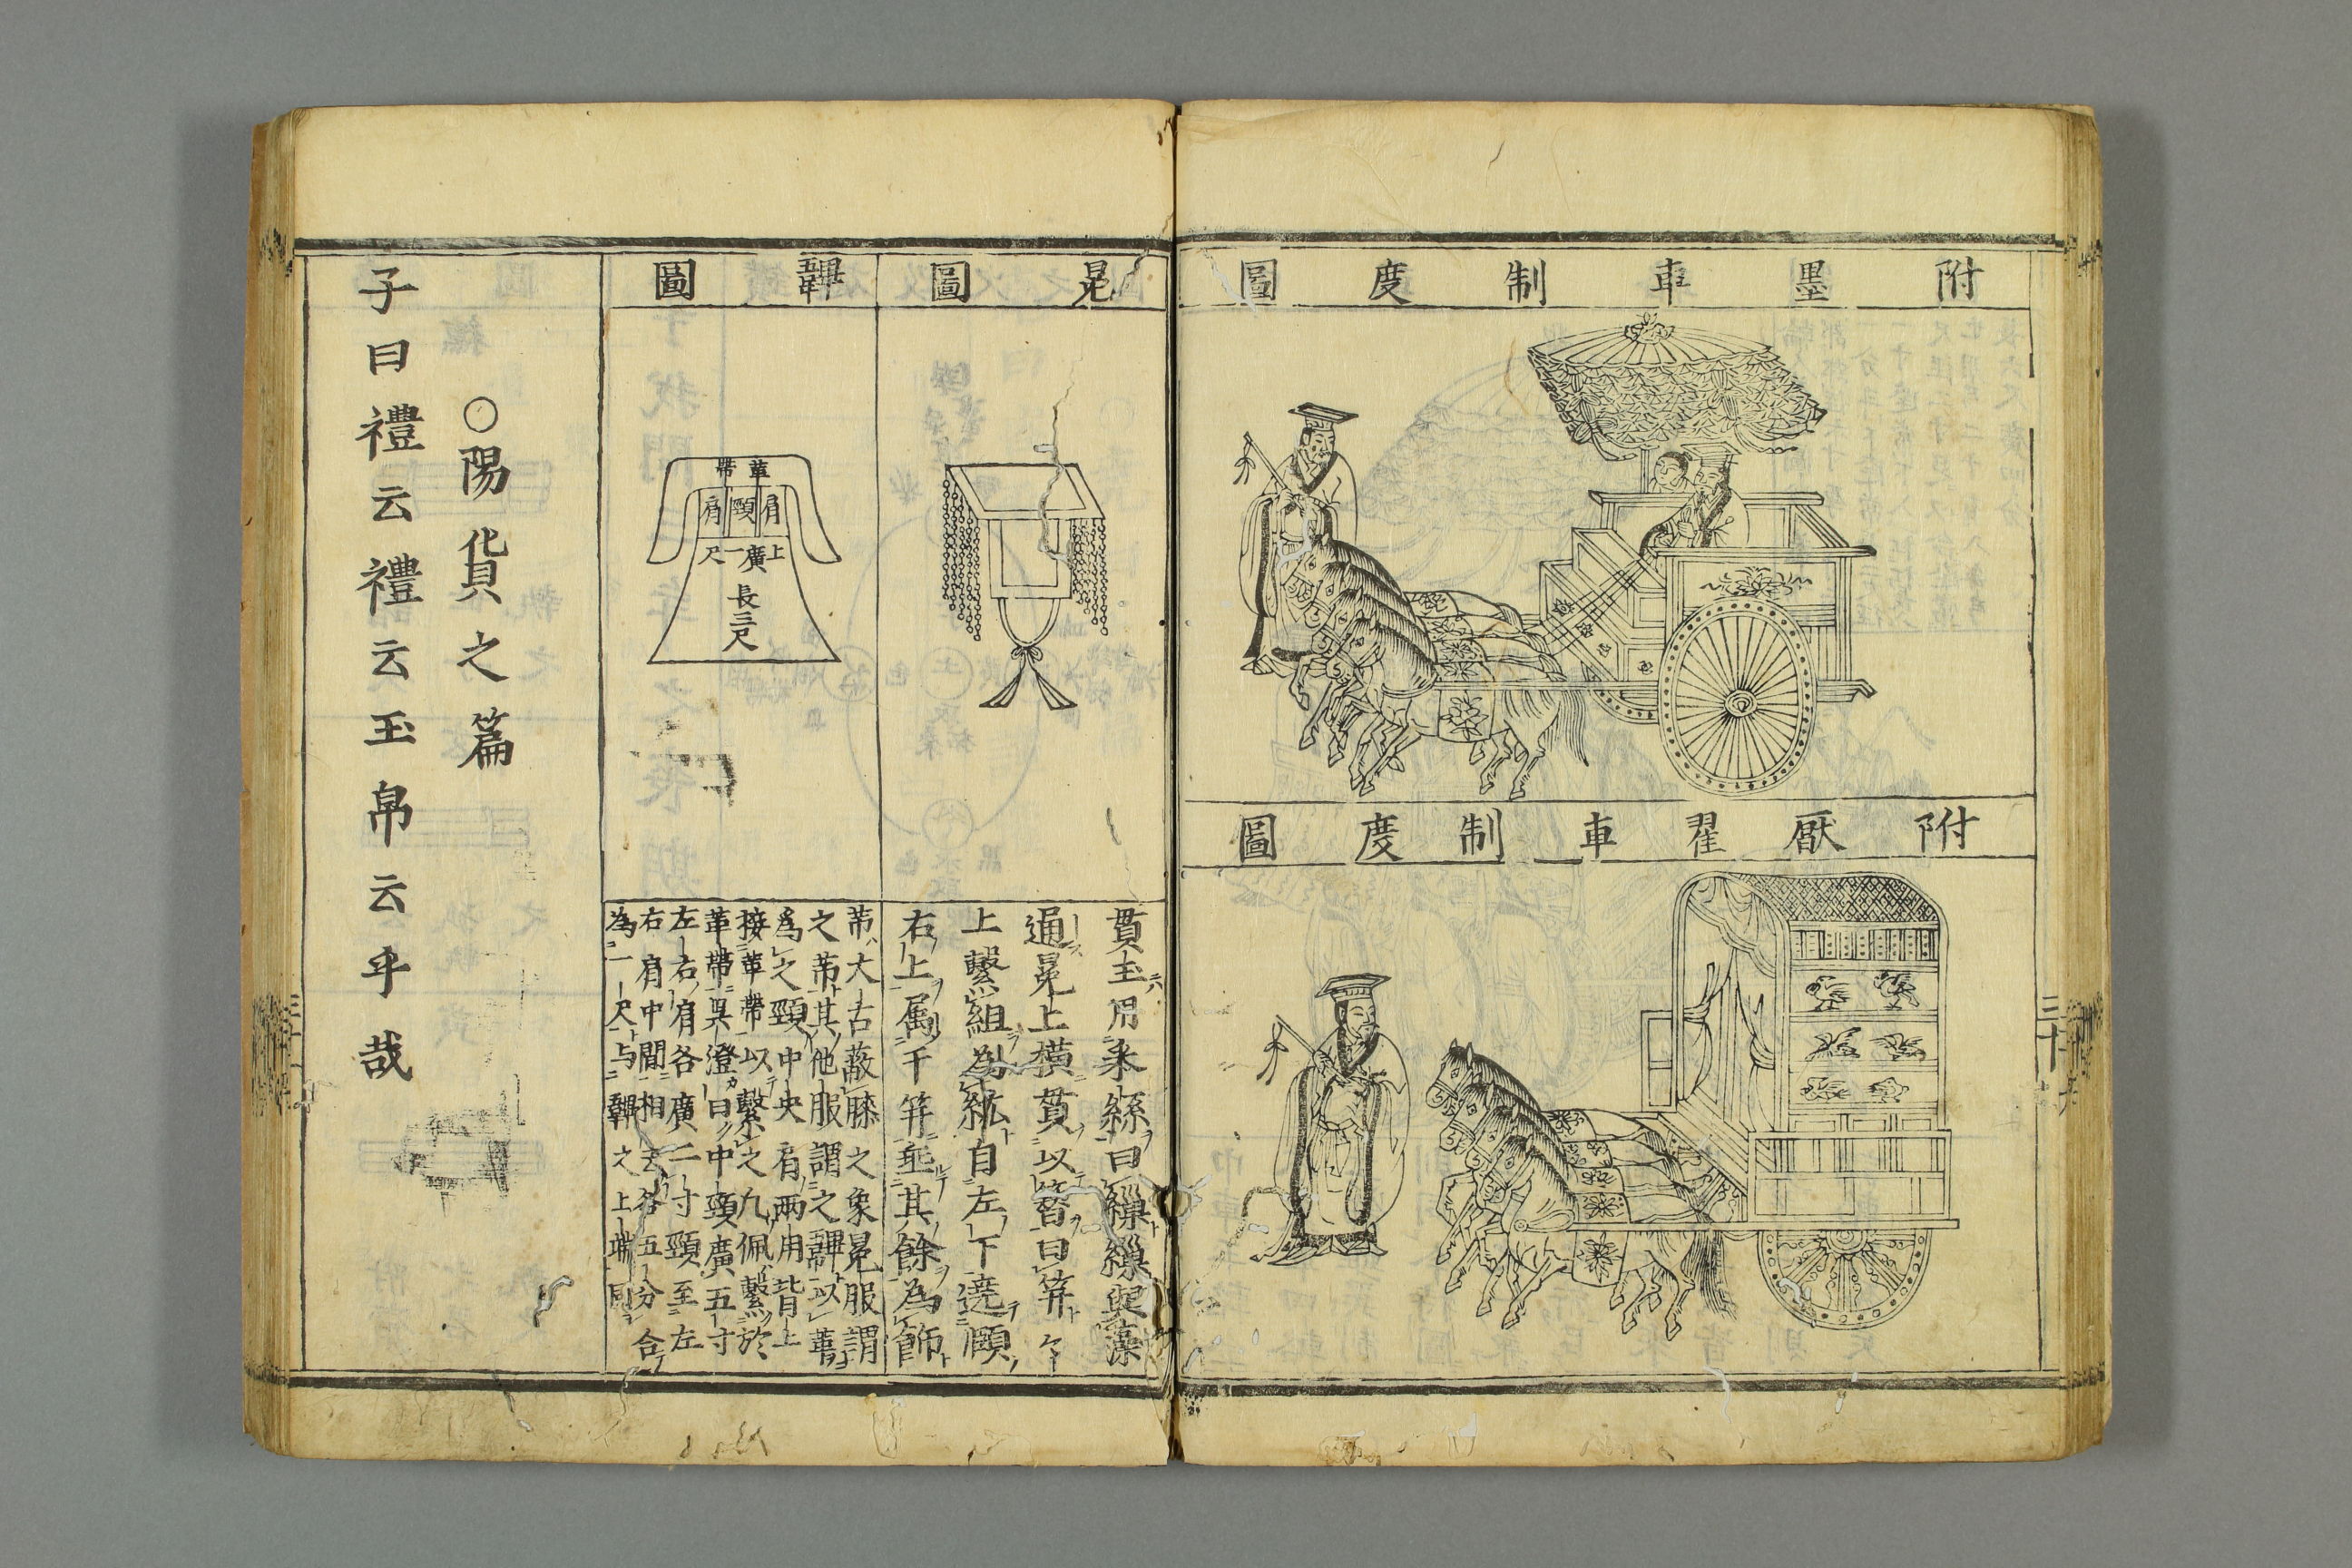 附墨車制度圖
附厭翟車制度圖
三十
冕圖
貫玉用采絲曰繅繅與藻
通冕上橫貫以簪曰笄々
上繫組為紘自左下遶頤
右上属于笄垂其餘為飾
韠圖
革帶
肩頸肩
上廣一尺
長三尺
芾大古蔽膝之象冕服謂
之芾其他服謂之韠以韋
為之頸中央肩两用皆上
接革帶以繫之九佩繫於
革帶吳澄曰中頸廣五寸
左右肩各廣二寸頸至左
右肩中間相去各五分合
為一尺与韠之上端同
○陽貨之篇
子曰禮云禮云玉帛云乎哉